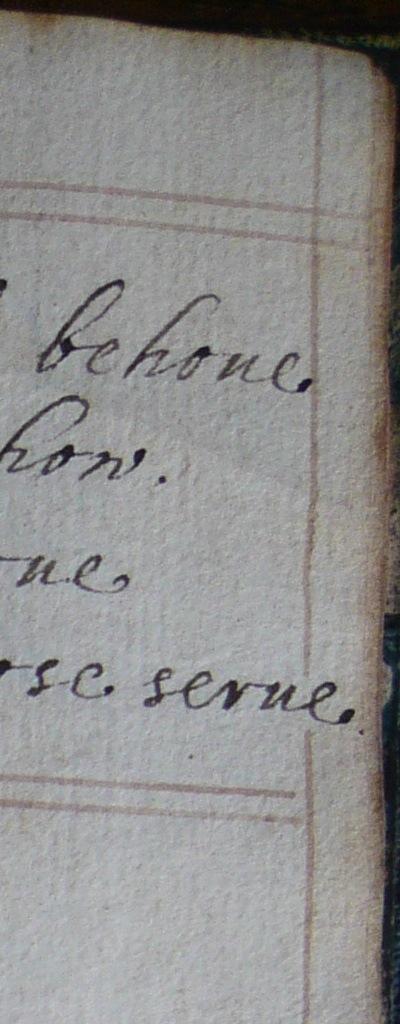 behoue
how.
rue
ose serue.